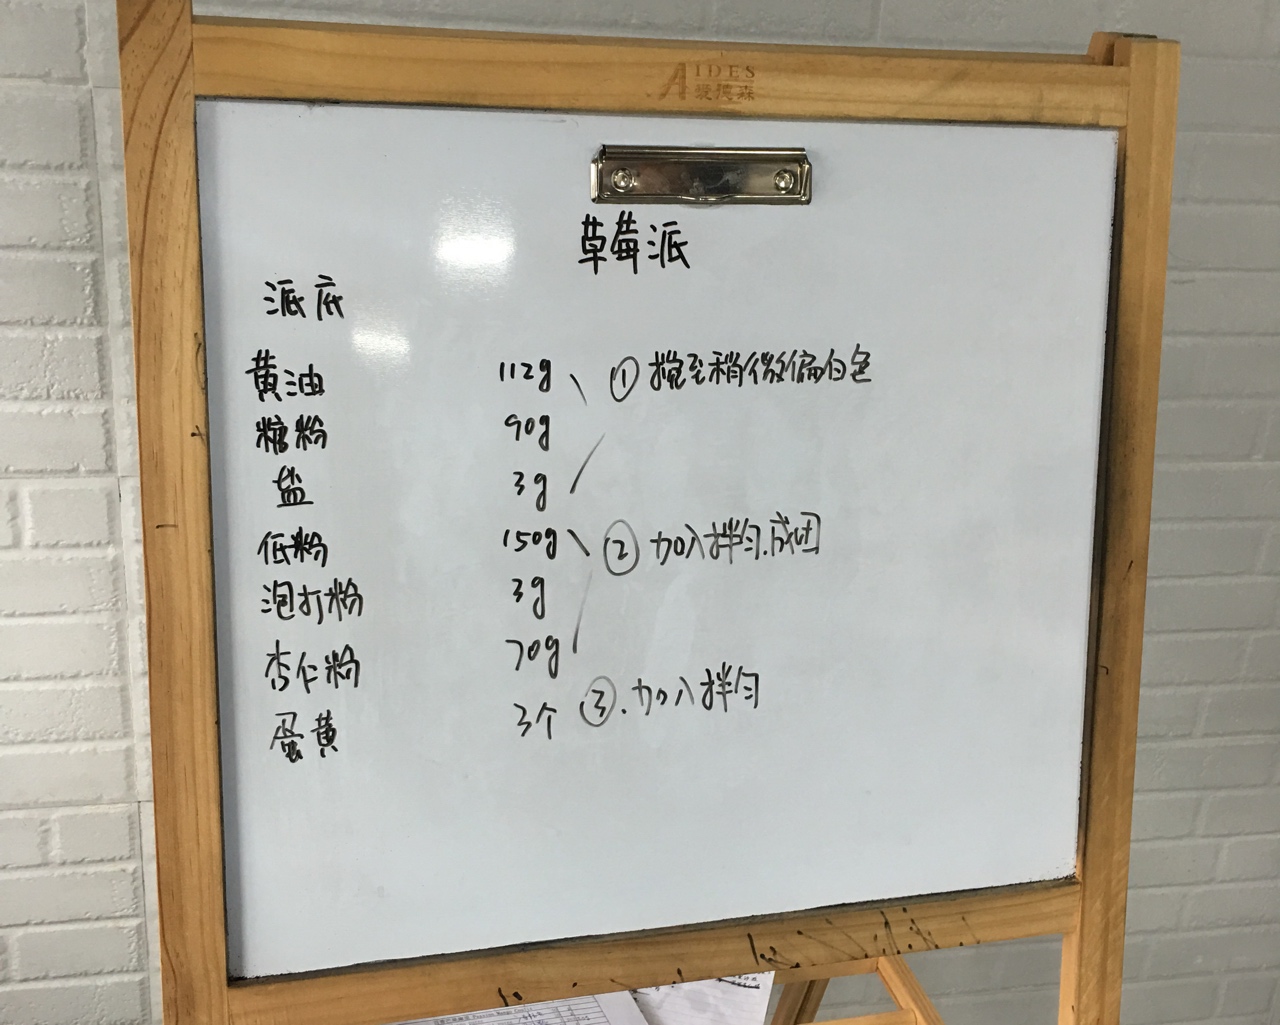 AIDES
爱德森
草莓派
派底
黄油 112g ① 搅至稍微偏白色
糖粉 90g
盐 3g
低粉 150g ② 加入拌匀.成团
泡打粉 3g
杏仁粉 70g
蛋黄 3个 ③.加入拌匀